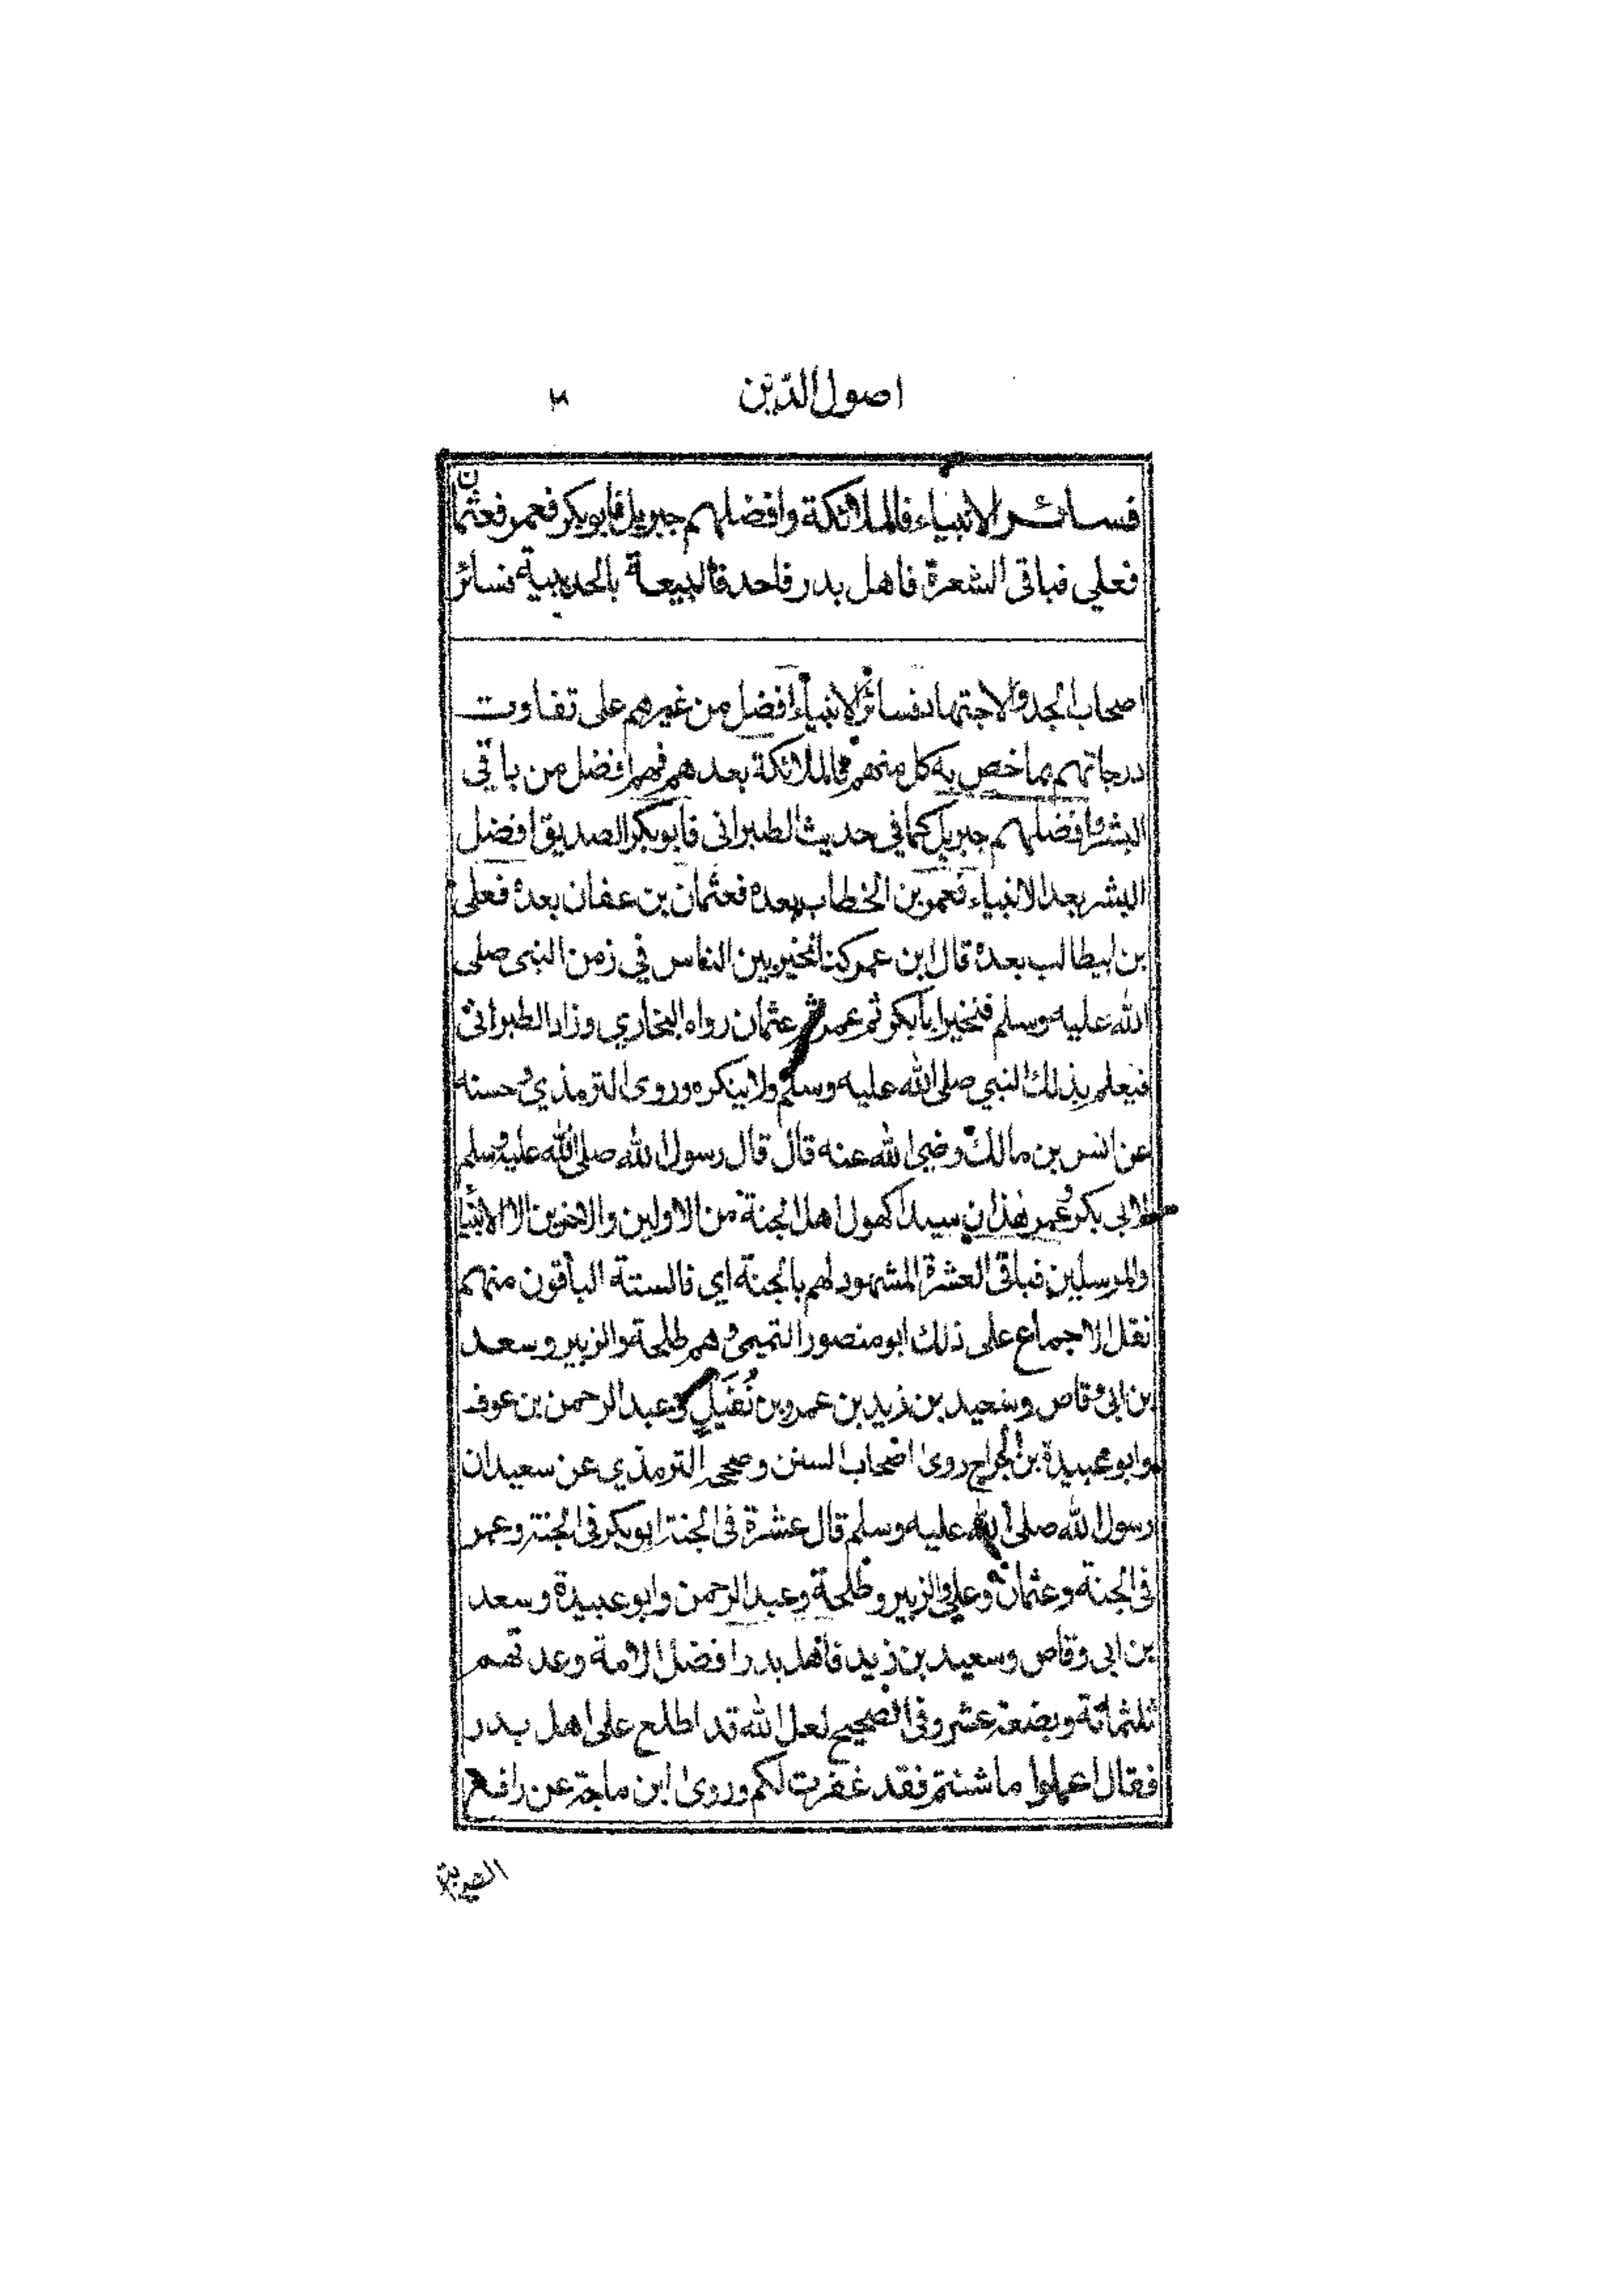 اصول الدّين
فسائر الانبياء فالملائكة وافضلهم جبريل فابوبكر فعمر فعثمان
فعلي فباقى الشعرة فاهل بدر فاحد فالبيعة بالحديبية فسائر
اصحاب الجد والاجتهاد فسائر الانبياء افضل من غيرهم على تفاوت
درجاتهم بما خص به كل منهم فالملائكة بعدهم فهم افضل من باقى
البشر وافضلهم جبريل كما في حديث الطبرانى فابوبكر الصديق افضل
البشر بعد الانبياء فعمر بن الخطاب بعده فعثمان بن عفان بعده فعلى
بن ابيطالب بعده قال ابن عمر كنا نخير بين الناس في زمن النبى صلى
الله عليه وسلم فنخير ابابكر ثم عمر ثم عثمان رواه البخاري وزاد الطبرانى
فيعلم بذلك النبي صلى الله عليه وسلم ولا ينكره وروى الترمذي وحسنه
عن انس بن مالك رضي الله عنه قال قال رسول الله صلى الله عليه وسلم
لابى بكر وعمر هذان سيدا كهول اهل الجنة من الاولين والاخرين الا الانبيا
والمرسلين فباقى العشرة المشهود لهم بالجنة اي فالستة الباقون منهم
نقل الاجماع على ذلك ابو منصور التميمى وهم طلحة والزبير وسعد
بن ابى وقاص وسعيد بن زيد بن عمرو بن نُفَيل وعبد الرحمن بن عوف
وابو عبيدة بن الجراح روى اصحاب السنن وصححه الترمذي عن سعيد ان
رسول الله صلى الله عليه وسلم قال عشرة فى الجنة ابوبكر فى الجنة وعمر
فى الجنة وعثمان وعلي والزبير وطلحة وعبد الرحمن وابو عبيدة وسعد
بن ابى وقاص وسعيد بن زيد فاهل بدر افضل الامة وعدتهم
ثلثمائة وبضعة عشر وفى الصحيح لعل الله قد اطلع على اهل بدر
فقال اعملوا ما شئتم فقد غفرت لكم وروى ابن ماجة عن رافع